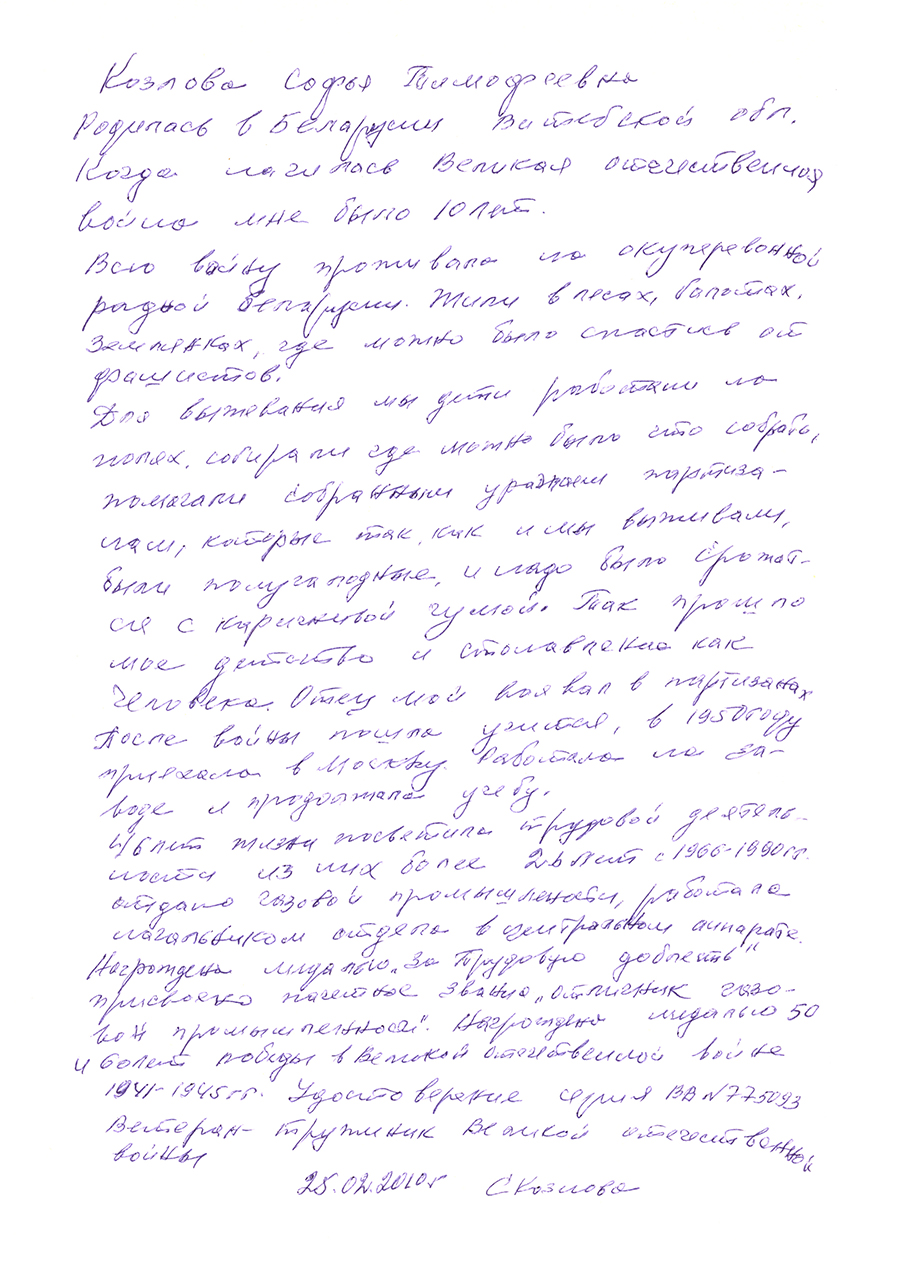 Козлова Софья Тимофеевна
Родилась в Беларусии Витебской обл.
Когда началась Великая отечественная
война мне было 10 лет.
Всю войну проживала на окуперованной
радной Беларусии. Жили в лесах, балотах,
землянках, где можно было спастись от
фашистов.
Для выжевания мы дети работали на
полях, собирали где можно было что собрать,
помагали собранным уражаем партиза-
нам, которые так, как и мы выживали,
были полуголодные, и надо было сражат-
ся с каричневой чумой. Так прошло
мое детство и стоновление как
человека. Отец мой воявал в партизанах
После войны пошла учится, в 1950 году
приехала в Москву. Работала на за-
воде и продолжала учебу.
46 лет жизни посветила трудовой деятель-
ности из них более 25 лет с 1966-1990 гг.
отдано газовой промышлености, работала
начальником отдела в центральном аппарате.
Награждена мидалью „За Трудовую доблесть"
присвоено пачетное звание „отличник газо-
вой промышленности". Награждена мидалью 50
и 60 лет победы в Великой отечественной войне
1941-1945 гг. Удостоверение серия ВВ №775093
Ветеран- труженик Великой отечественной
войны
25.02.2010 г СКозлова